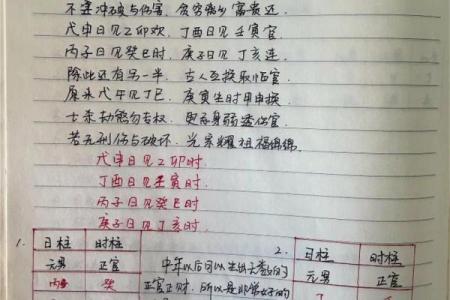 不幸冲破与伤害，贫穷病夕富贵迟
戊申日见乙卯欢，丁酉日见壬寅官
丙子日见癸巳时，庚子日见丁亥连
除此还有另一半，古人互换取恒官
原来戊午见丁巳，庚寅生时甲申换
士子劫能勿专权，更忌身弱透伤官
若无刑伤与破坏，光宗耀祖福绵绵
戊申日见乙卯时
丁酉日见壬寅时
丙子日见癸巳时
庚子日见丁亥时
1. 日柱 时柱
元男 正官
丙 癸
中年以后可以生出大量好的
正官正财，所以是非常好的
2. 日柱 时柱
元男 正官